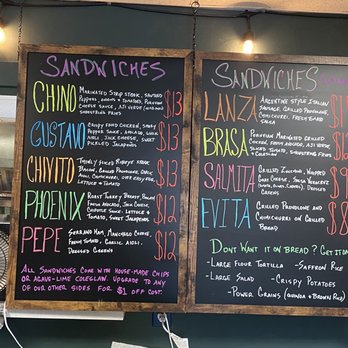 SANDWICHES
CHINO
MARINATED STRIP STEAK, SAUTEED
PEPPERS, ONIONS + TOMATOES, PERUVIAN
CHEESE SAUCE, AJI VERDE
SHOESTRING FRIES
$13
GUSTAVO
CRISPY FRIED CHICKEN, SWEET
PEPPER SAUCE, AVOCADO,
AIOLI, JACK CHEESE, SWEET
PICKLED JALAPEÑOS
$13
CHIVITO
THINLY SLICED RIBEYE STEAK,
BACON, GRILLED PROVOLONE, GARLIC
AIOLI, CHIMICHURRI, OVER EASY EGG,
LETTUCE + TOMATO
$13
PHOENIX
ROAST TURKEY BREAST, BACON
FRIED AVOCADO, JACK CHEESE,
CHIPOTLE SAUCE, LETTUCE +
TOMATO, SWEET JALAPEÑOS
$12
PEPE
SERRANO HAM, MANCHEGO CHEESE,
FRESH TOMATO, GARLIC AIOLI,
DRESSED GREENS
$12
ALL SANDWICHES COME WITH HOUSE-MADE CHIPS
OR AGAVE-LIME COLESLAW. UPGRADE TO ANY
OF OUR OTHER SIDES FOR $1 OFF COST.
SANDWICHES
LANZA
ARGENTINE STYLE ITALIAN
SAUSAGE, GRILLED PROVOLONE,
CHIMICHURRI, FRESH
SALSA
$1
BRASA
PERUVIAN MARINATED GRILLED
CHICKEN, FRESH AVOCADO, AJI VERDE,
TOMATO, SHOESTRING FRIES
$1
SALMITA
GRILLED ZUCCHINI, WHIPPED
GOAT CHEESE, SALSA VERDE
$9
EVITA
GRILLED PROVOLONE AND
CHIMICHURRI ON GRILLED
BREAD
$8
DONT WANT IT ON BREAD? GET IT ON
-LARGE FLOUR TORTILLA
-SAFFRON RICE
-LARGE SALAD
-CRISPY POTATOES
-POWER GRAINS (QUINOA + BROWN RICE)